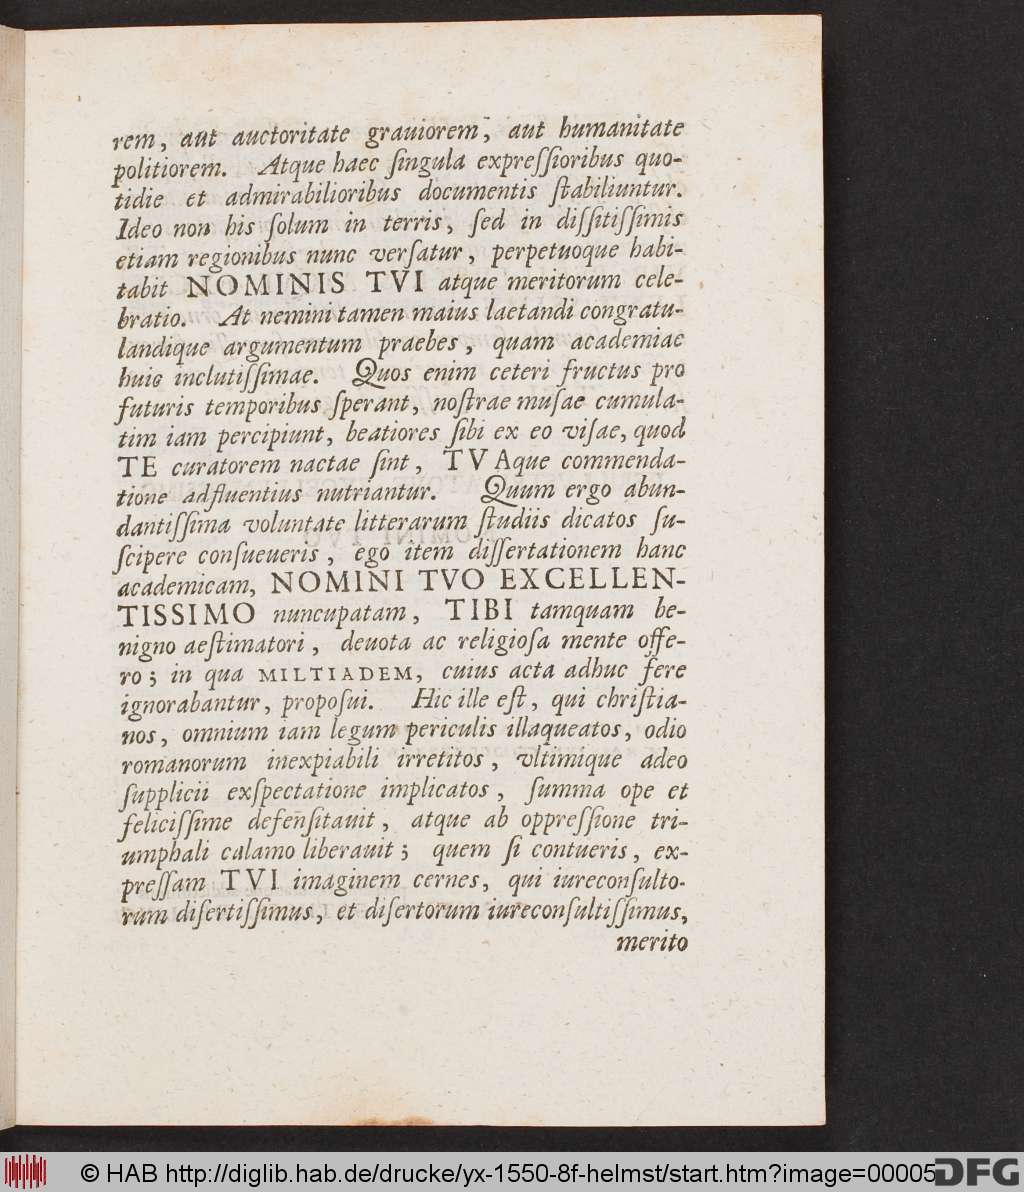 rem, aut auctoritate grauiorem, aut humanitate
politiorem. Atque haec ſingula expreſſioribus quo-
tidie et admirabilioribus documentis ſtabiliuntur.
Ideo non his ſolum in terris, ſed in diſſitiſſimis
etiam regionibus nunc verſatur, perpetuoque habi-
tabit NOMINIS TVI atque meritorum cele-
bratio. At nemini tamen maius laetandi congratu-
landique argumentum praebes, quam academiae
huic inclutiſſimae. Quos enim ceteri fructus pro
futuris temporibus ſperant, noſtrae muſae cumula-
tim iam percipiunt, beatiores ſibi ex eo viſae, quod
TE curatorem nactae ſint, TVAque commenda-
tione adfluentius nutriantur. Quum ergo abun-
dantiſſima voluntate litterarum ſtudiis dicatos ſu-
ſcipere conſueueris, ego item diſſertationem hanc
academicam, NOMINI TVO EXCELLEN-
TISSIMO nuncupatam, TIBI tamquam be-
nigno aeſtimatori, deuota ac religioſa mente offe-
ro; in qua MILTIADEM, cuius acta adhuc fere
ignorabantur, propoſui. Hic ille eſt, qui chriſtia-
nos, omnium iam legum periculis illaqueatos, odio
romanorum inexpiabili irretitos, vltimique adeo
ſupplicii exſpectatione implicatos, ſumma ope et
feliciſſime defenſitauit, atque ab oppreſſione tri-
umphali calamo liberauit; quem ſi contueris, ex-
preſſam TVI imaginem cernes, qui iureconſulto-
rum diſertiſſimus, et diſertorum iureconſultiſſimus,
merito
© HAB http://diglib.hab.de/drucke/yx-1550-8f-helmst/start.htm?image=00005
DFG